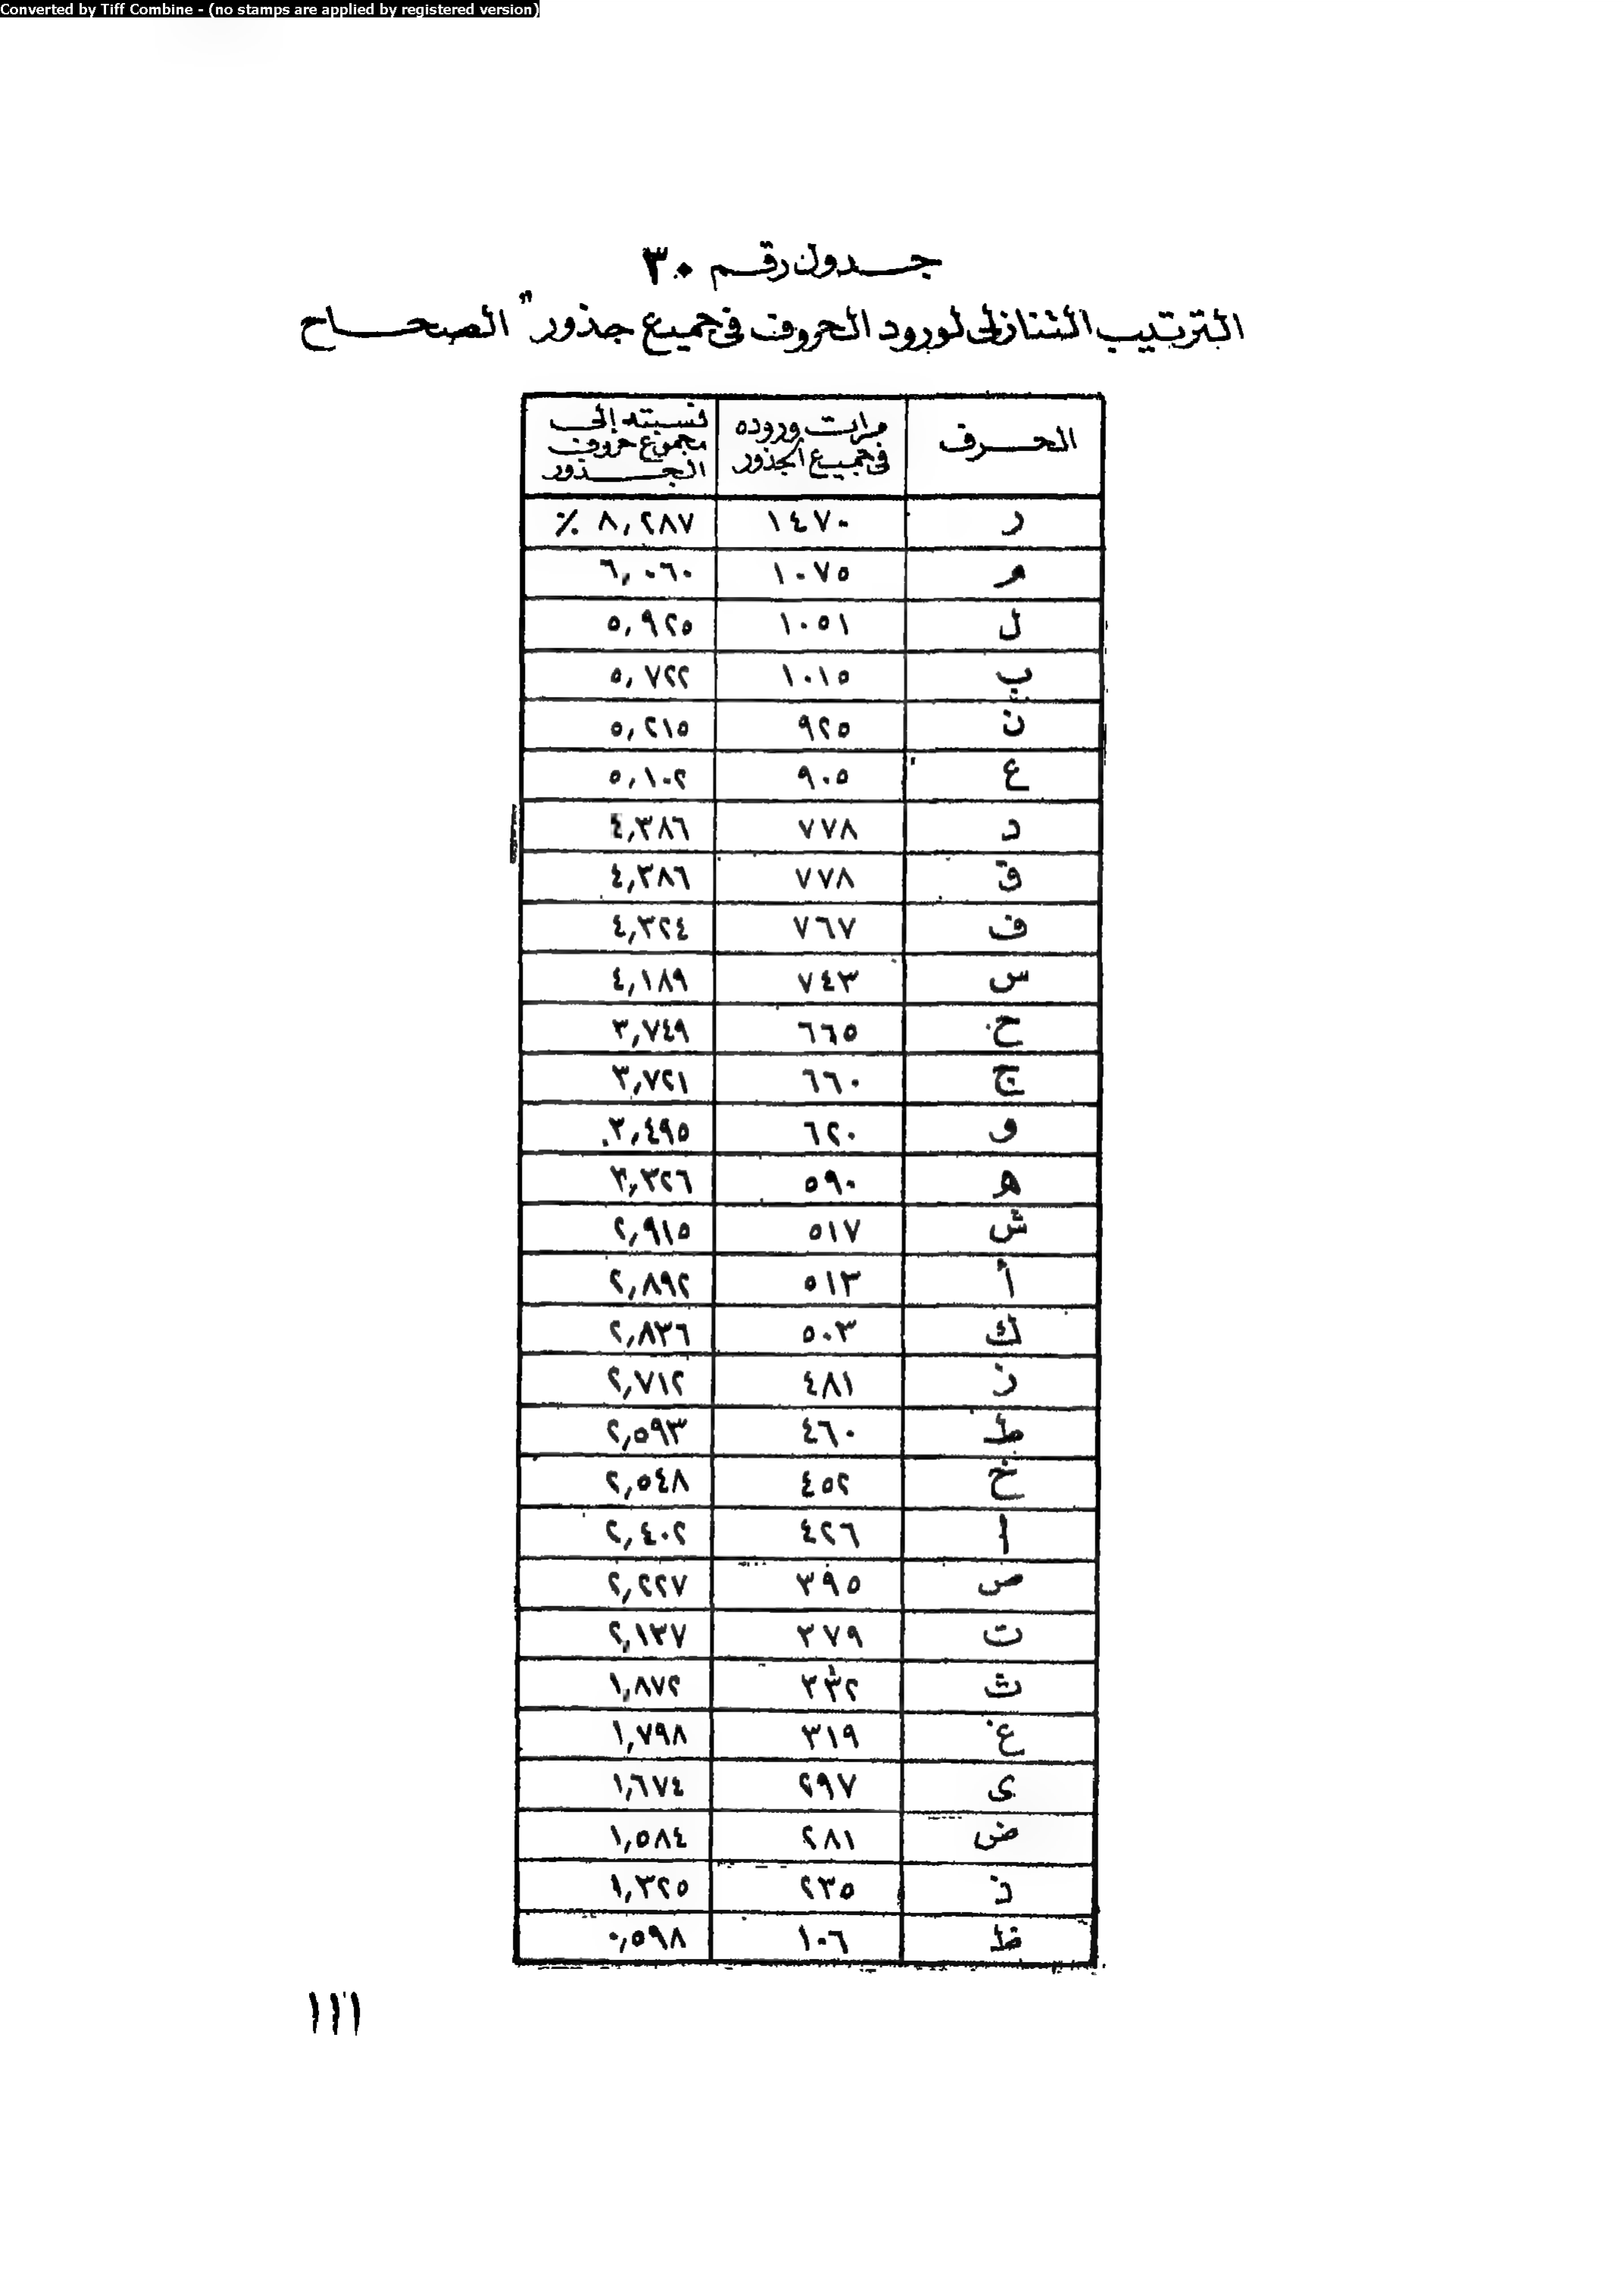 Converted by Tiff Combine - (no stamps are applied by registered version)
جدول رقم ٣٠
الترتيب التنازلى لورود الحروف فى جميع جذور "الصحاح
الحرف مرات وروده فى جميع الجذور نسبته إلى مجموع حروف الجذور
ر ١٤٧٠ ٨,٢٨٧ ٪
م ١٠٧٥ ٦,٠٦٠
ل ١٠٥١ ٥,٩٢٥
ب ١٠١٥ ٥,٧٢٢
ن ٩٢٥ ٥,٢١٥
ع ٩٠٥ ٥,١٠٢
د ٧٧٨ ٤,٣٨٦
ق ٧٧٨ ٤,٣٨٦
ف ٧٦٧ ٤,٣٢٤
س ٧٤٣ ٤,١٨٩
ح ٦٦٥ ٣,٧٤٩
ج ٦٦٠ ٣,٧٢١
و ٦٢٠ ٣,٤٩٥
ه ٥٩٠ ٣,٣٢٦
ش ٥١٧ ٢,٩١٥
أ ٥١٣ ٢,٨٩٢
ك ٥٠٣ ٢,٨٣٦
ز ٤٨١ ٢,٧١٢
ط ٤٦٠ ٢,٥٩٣
خ ٤٥٢ ٢,٥٤٨
ا ٤٢٦ ٢,٤٠٢
ص ٣٩٥ ٢,٢٢٧
ت ٣٧٩ ٢,١٣٧
ث ٣٣٢ ١,٨٧٢
غ ٣١٩ ١,٧٩٨
ى ٢٩٧ ١,٦٧٤
ض ٢٨١ ١,٥٨٤
ذ ٢٣٥ ١,٣٢٥
ظ ١٠٦ ٠,٥٩٨
١١١